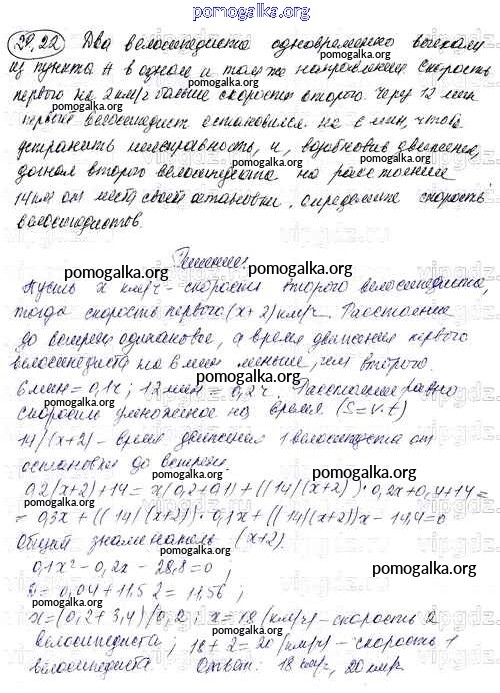 pomogalka.org
29.22 Два велосипедиста одновременно выехали
из пункта А в одном и том же направлении. Скорость
первого на 2 км/ч больше скорости второго. Через 12 мин
первый велосипедист остановился на 6 мин, чтобы
устранить неисправность, и, возобновив движение,
догнал второго велосипедиста на расстоянии
14 км от места своей остановки. Определите скорость
велосипедистов.
Решение
Пусть x км/ч - скорость второго велосипедиста,
тогда скорость первого (x+2) км/ч. Расстояние
до встречи одинаковое, а время движения первого
велосипедиста на 6 мин меньше, чем второго.
6 мин = 0,1 ч; 12 мин = 0,2 ч. Расстояние равно
скорости умноженное на время (S=v.t)
14/(x+2) - время движения 1 велосипедиста от
остановки до встречи.
0,2(x+2)+14 = x(0,2+0,1)+((14/(x+2))·0,2x+0,4+14=
= 0,3x+((14/(x+2))·0,1x+((14/(x+2))x-14,4=0
Общий знаменатель (x+2).
0,1x²-0,2x-28,8=0;
= 0,04+11,52=11,56;
x=(0,2+3,4)/0,2; x=18(км/ч)-скорость 2
велосипедиста; 18+2=20(км/ч)-скорость 1
велосипедиста. Ответ: 18 км/ч, 20 км/ч